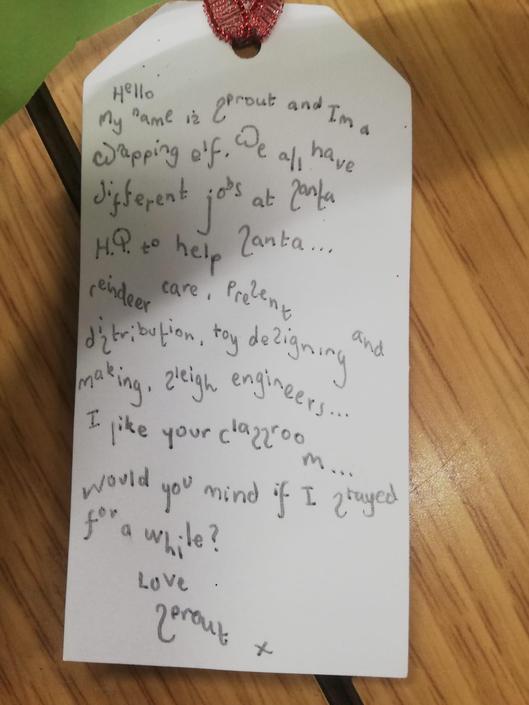 Hello
My name is Sprout and I'm a
wrapping elf. We all have
different jobs at Santa
H.Q. to help Santa...
reindeer care, present
distribution, toy designing and
making, sleigh engineers...
I like your classroo
m...
would you mind if I stayed
for a while?
Love
Sprout x